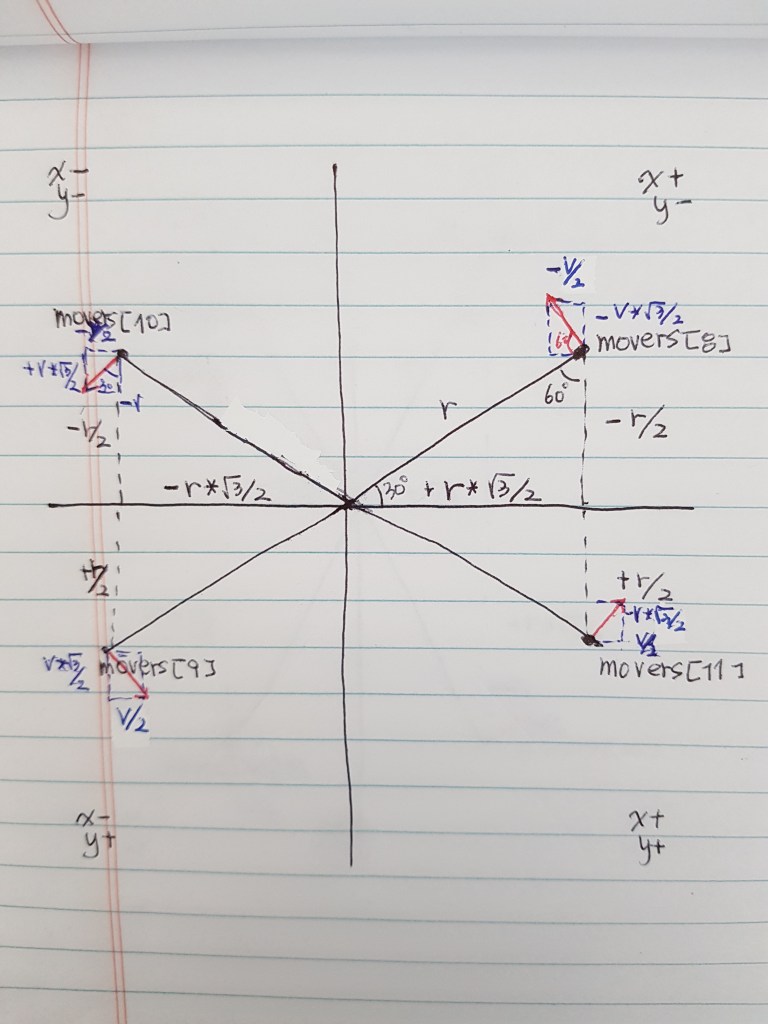 x-
y-
x+
y-
-v/2
movers[10]
-v*√3/2
movers[8]
+v*√3/2
30°
-r
60°
60°
r
-r/2
-r/2
-r*√3/2
30°
+r*√3/2
+r/2
+r/2
-v*√3/2
v/2
v*√3/2
movers[9]
movers[11]
v/2
x-
y+
x+
y+